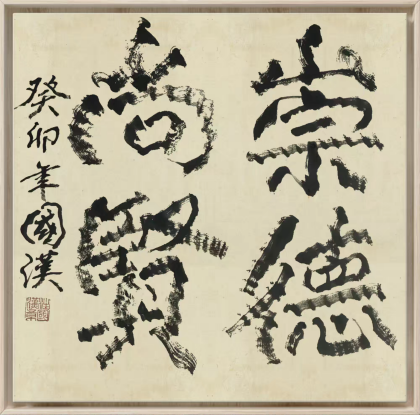 崇德
尚賢
癸卯年國漢